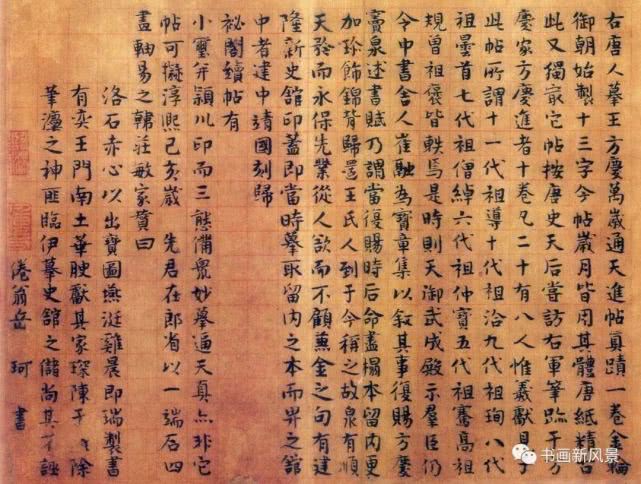 右唐人摹王方慶萬歲通天進帖真蹟一卷金輪
御朝始製十三字今帖歲月皆用其體唐紙精古
此又獨冣它帖按唐史天后嘗訪右軍筆蹟于方
慶家方慶進者十卷凡二十有八人惟羲獻見于
此帖所謂十一代祖導十代祖洽九代祖珣八代
祖曇首七代祖僧綽六代祖仲寶五代祖騫高祖
規曾祖褒皆軼焉是時則天御武成殿示羣臣仍
令中書舍人崔融為寶章集以敘其事復賜方慶
竇泉述書賦乃謂當復賜時后命盡榻本留內更
加珍飾錦背歸還王氏人到于今稱之故泉有順
天矜而永保先業從人欲而不顧兼金之句有建
隆新史館印蓋即當時摹取留內之本而畀之館
中者建中靖國刻歸
祕閣續帖有
小璽并潁川印而三態備眾妙摹通天真亦非它
帖可擬淳熙己亥歲 先君在郎省以一端石四
畫軸易之韓莊敏家贊曰
洛石赤心以出寶圖燕涎雞晨即瑞製書
有奕王門南土華腴獻其家琛陳于除
筆濃之神匪臨伊摹史館之儲尚其不誣
倦翁岳 珂 書
书画新风景